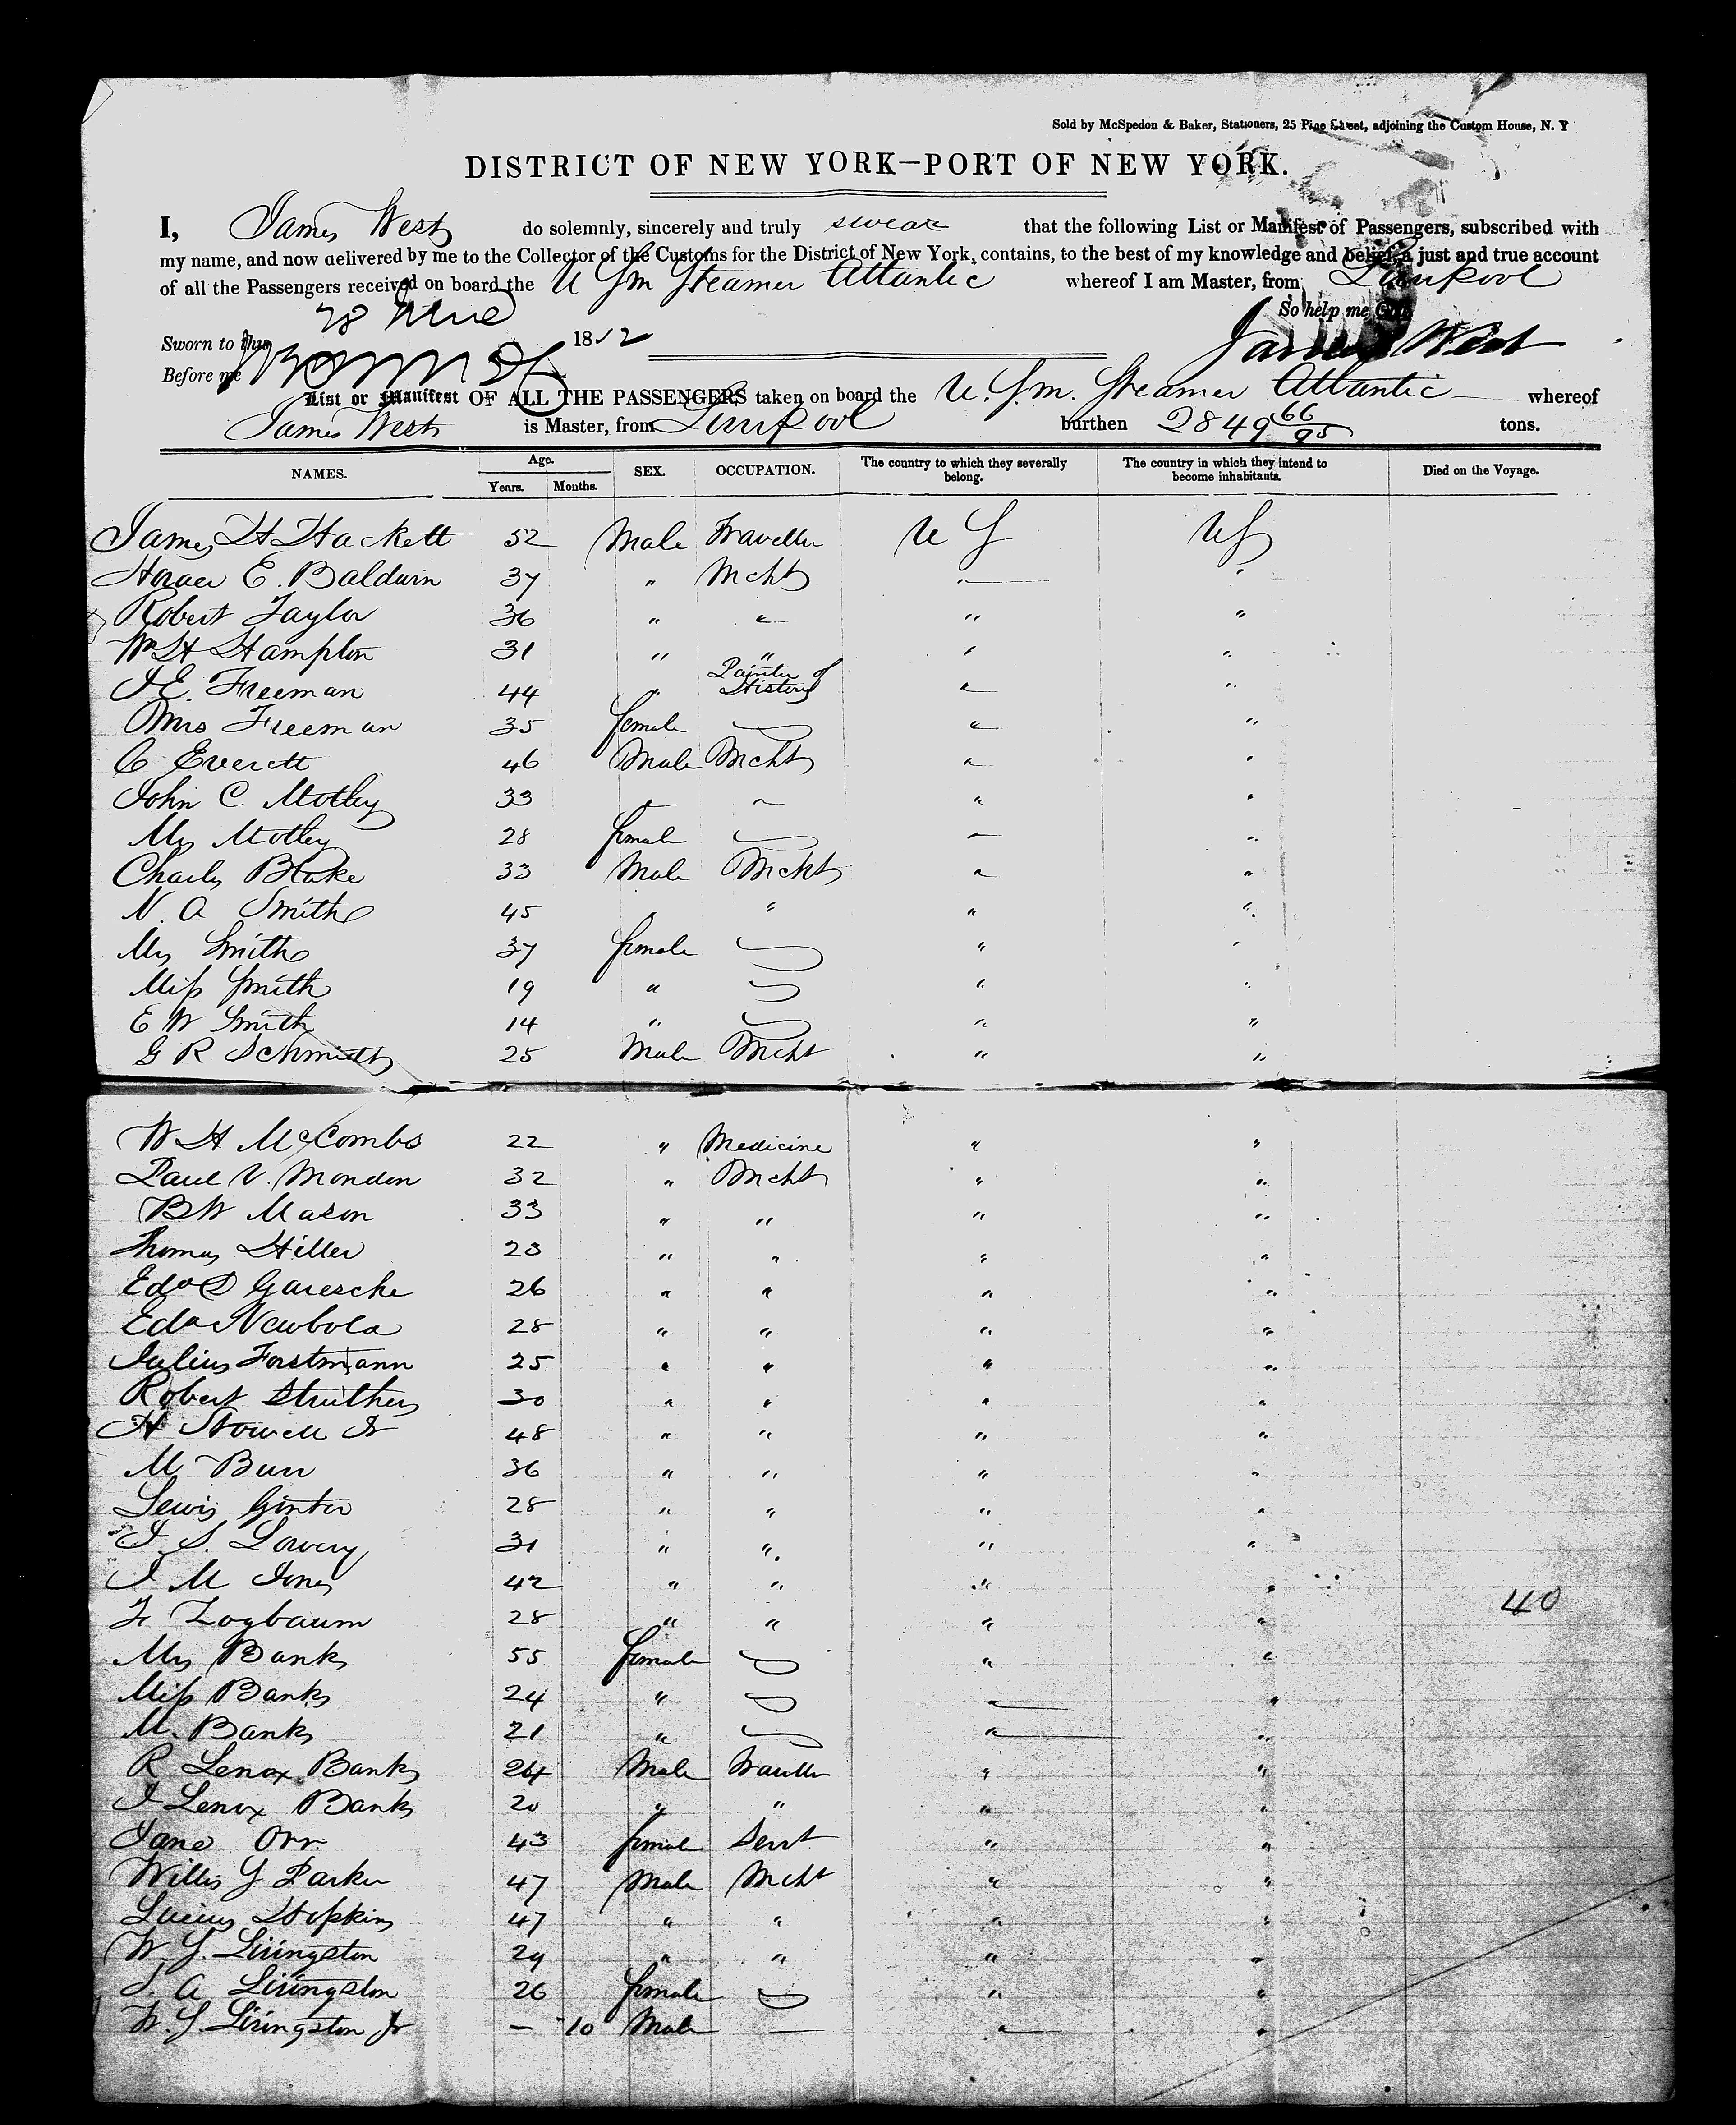 Sold by McSpedon & Baker, Stationers, 25 Pine Street, adjoining the Custom House, N. Y
DISTRICT OF NEW YORK—PORT OF NEW YORK.
I, James West do solemnly, sincerely and truly swear that the following List or Manifest of Passengers, subscribed with
my name, and now delivered by me to the Collector of the Customs for the District of New York, contains, to the best of my knowledge and belief, a just and true account
of all the Passengers received on board the U S M Steamer Atlantic whereof I am Master, from Liverpool
So help me God.
28 June
Sworn to this 1852 James West
Before me
List or Manifest OF ALL THE PASSENGERS taken on board the U. S. M. Steamer Atlantic whereof
James West is Master, from Liverpool burthen 2849 66/95 tons.
NAMES. Age. Years. Months. SEX. OCCUPATION. The country to which they severally belong. The country in which they intend to become inhabitants. Died on the Voyage.
James H Hackett 52 Male Traveller U S U S
Horace E. Baldwin 37 " Mcht " "
Robert Taylor 36 " " " "
Wm H Hampton 31 " " " "
J E. Freeman 44 " Painter of History " "
Mrs Freeman 35 female " "
C Everett 46 Male Mcht " "
John C Motley 33 " " "
Mrs Motley 28 female " "
Charles Blake 33 Male Mcht " "
N. A Smith 45 " " "
Mrs Smith 37 female " "
Miss Smith 19 " " "
E W Smith 14 " " "
G R Schmidt 25 Male Mcht " "
W H McCombs 22 " Medicine " "
Paul V. Monden 32 " Mcht " "
B W Mason 33 " " " "
Thomas Hiller 23 " " " "
Edwd D Garesche 26 " " " "
Edwd Newbold 28 " " " "
Julius Forstmann 25 " " " "
Robert Struthers 30 " " " "
H Stowell Jr 48 " " " "
M Burr 36 " " " "
Lewis Ginter 28 " " " "
J. S. Lowery 31 " " " "
J M Jones 42 " " " "
F. Zogbaum 28 " " " " 40
Mrs Banks 55 female " "
Miss Banks 24 " " "
M. Banks 21 " " "
R Lenox Banks 24 Male Traveller " "
J Lenox Banks 20 " " " "
Jane Orr 43 female Servt " "
Willis Y Parker 47 Male Mcht " "
Lucius Hopkins 47 " " " "
W. S. Livingston 29 " " " "
S. A Livingston 26 female " "
W. S. Livingston Jr — 10 Male — " "